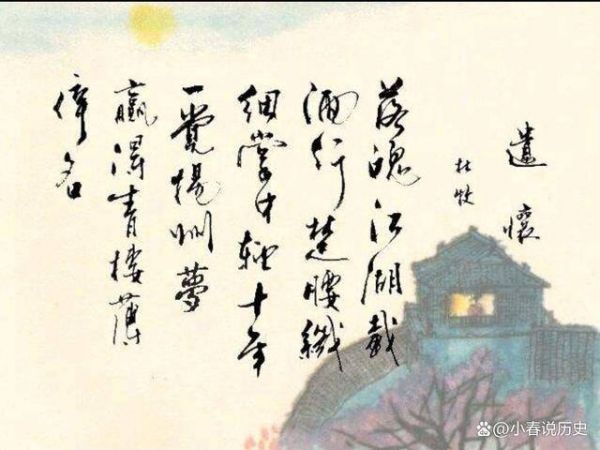 遣懷
杜牧
落魄江湖載
酒行楚腰纖
細掌中輕十年
一覺揚州夢
贏得青樓薄
倖名
@小春说历史